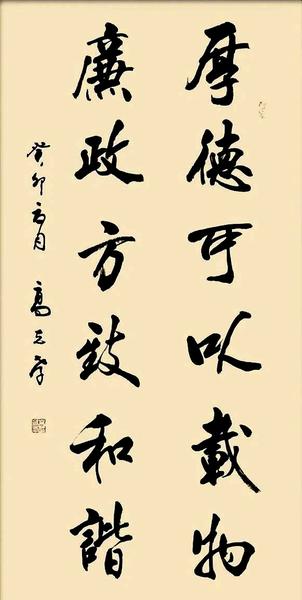 厚德可以載物
廉政方致和諧
癸卯 月 高 孝